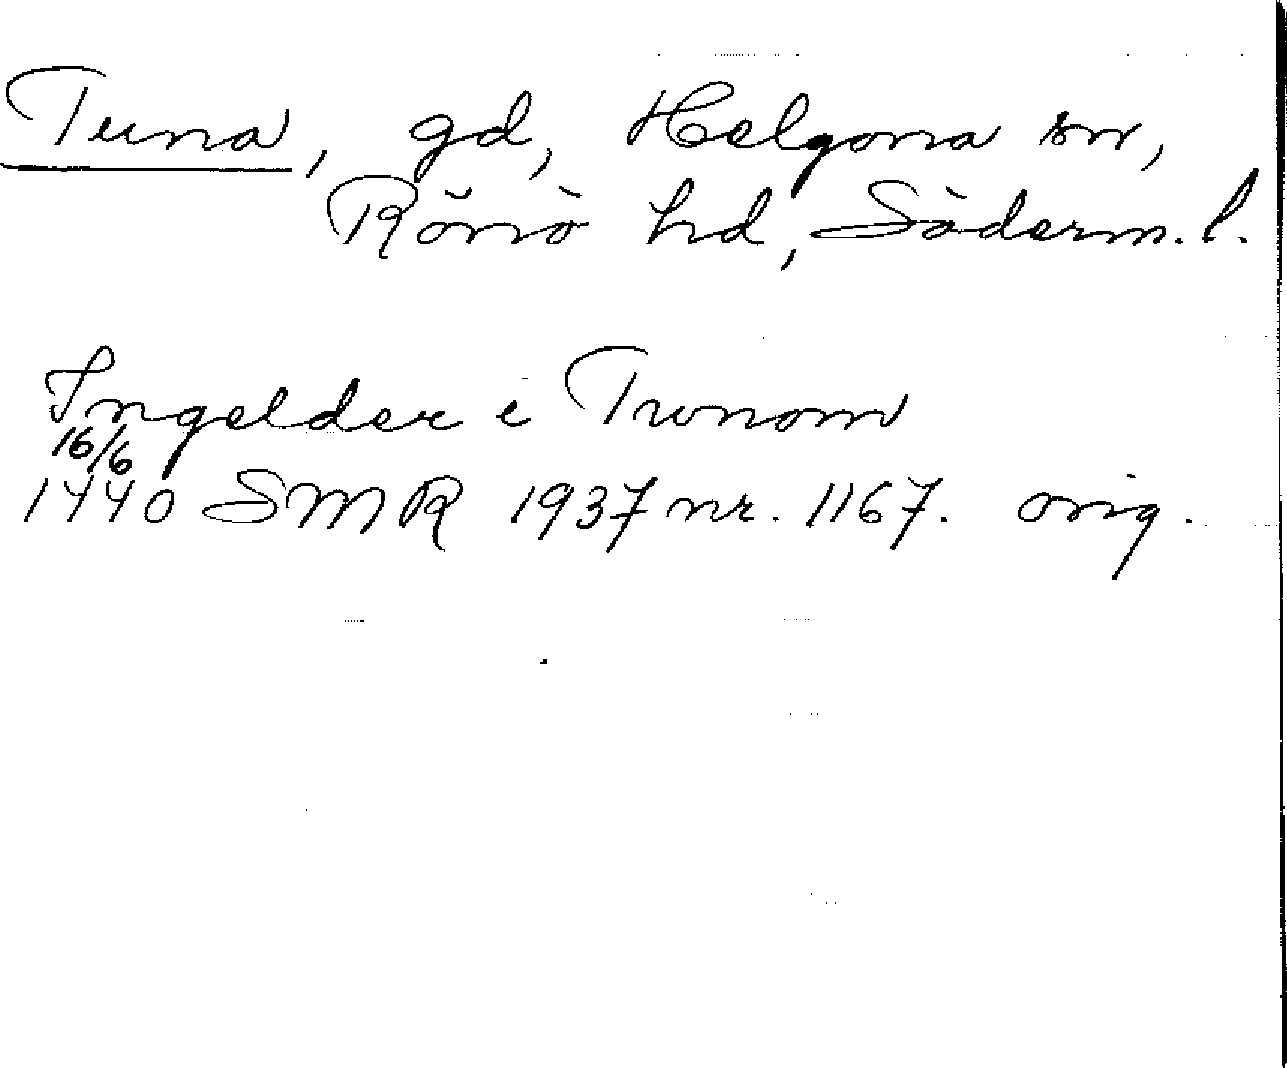 Tuna, gd, Helgona sn,
Rönö hd, Söderm. l.
Ingelder i Twnom
16/6
1440 SMR 1937 nr. 1167. orig.